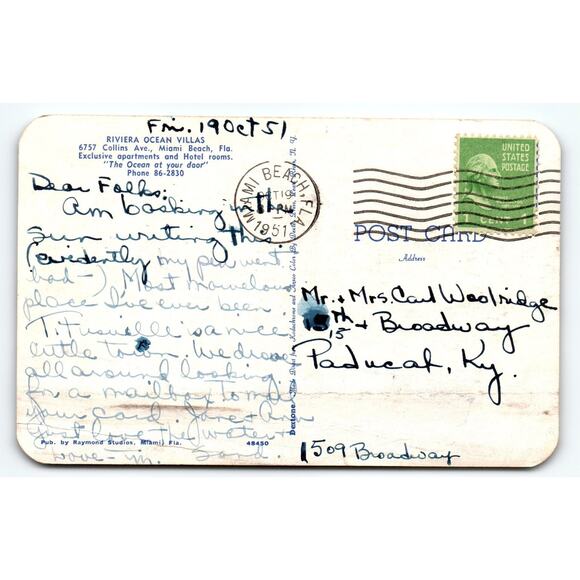 Fri. 19 Oct 51
RIVIERA OCEAN VILLAS
6757 Collins Ave., Miami Beach, Fla.
Exclusive apartments and Hotel rooms.
"The Ocean at your door"
Phone 86-2830
Dear Folks:
Am basking in the
sun writing this.
(evidently my pen went
bad-). Most marvelous
place I've ever been.
Titusville is a nice
little town. We drove
all around looking
for a mailbox to mail
your card. Jane + Ann
just love the water +
Love - sand.
Pub. by Raymond Studios, Miami, Fla.
48450
Dextone
MIAMI BEACH, FLA.
OCT 19
PM
1951
UNITED
STATES
POSTAGE
1 CENT 1
POST CARD
Address
Mr. + Mrs. Carl Woolridge
15th + Broadway
Paducah, Ky.
1509 Broadway